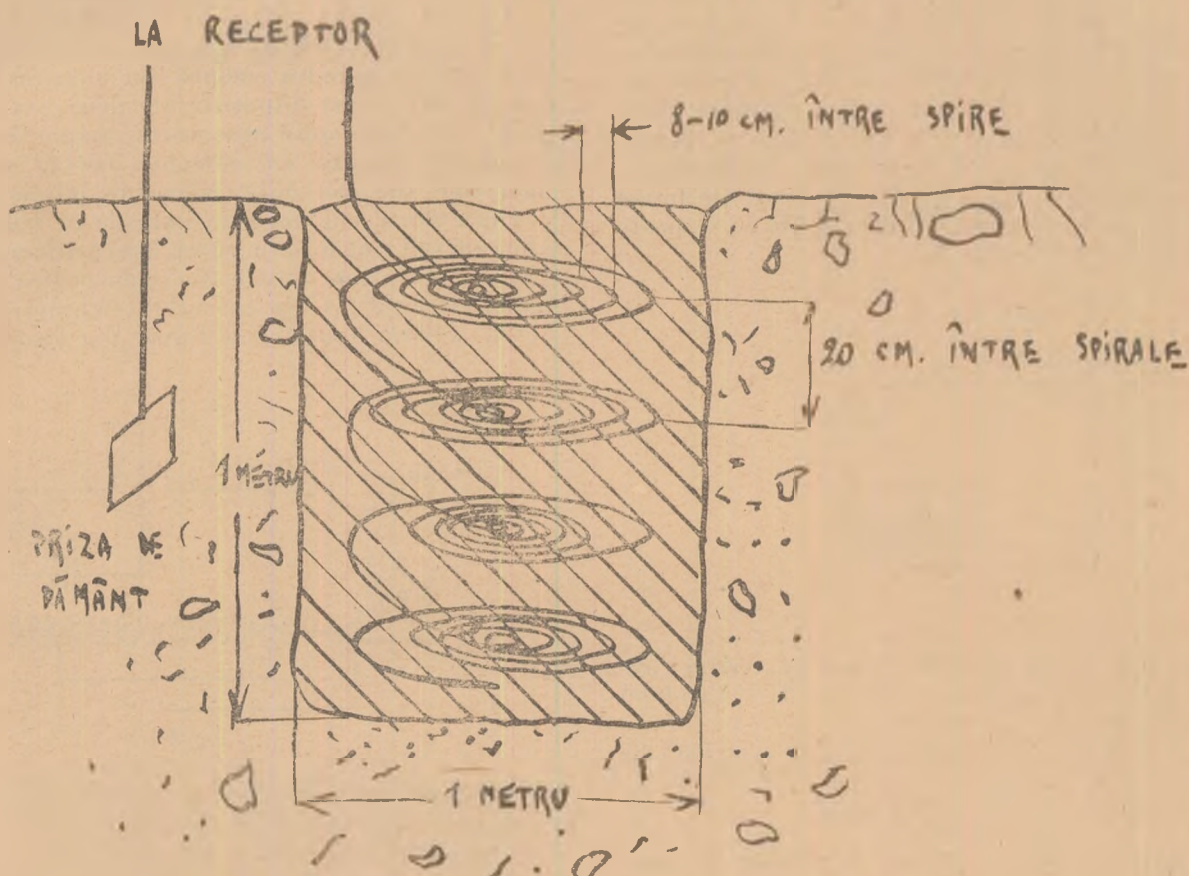 LA RECEPTOR
8-10 CM. ÎNTRE SPIRE
20 CM. ÎNTRE SPIRALE
1 METRU
PRIZA DE
PĂMÂNT
1 METRU